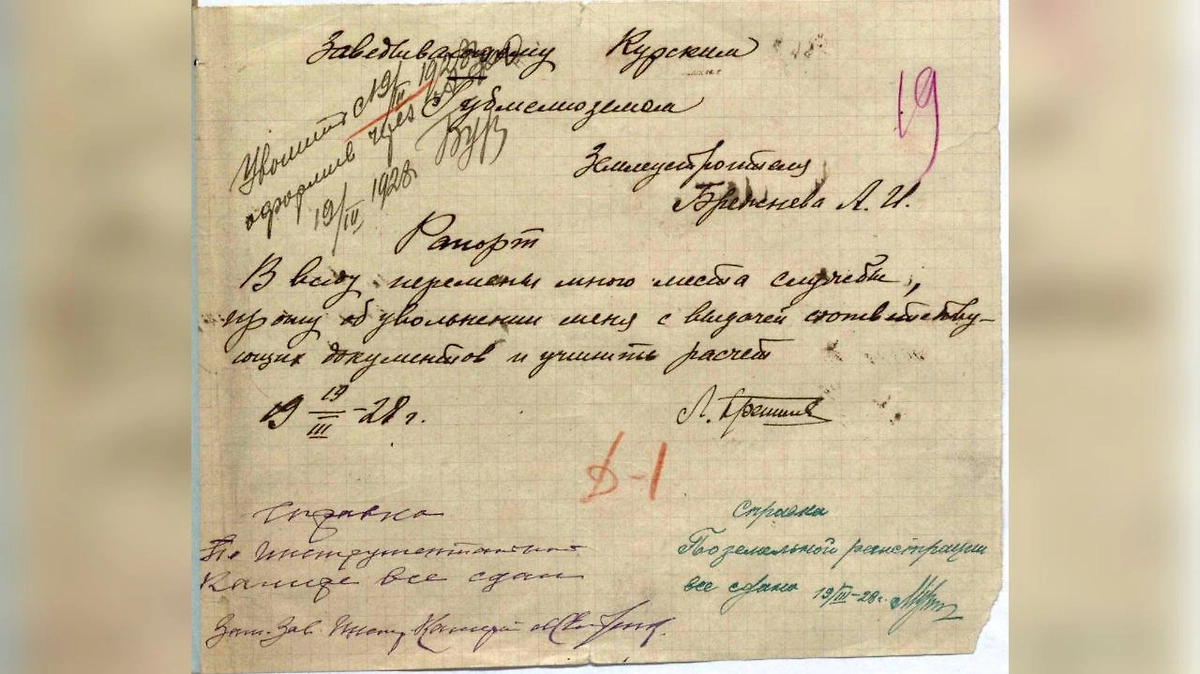 Заведывающему Курским
Губмелиоземом
19
Землеустроителя
Брежнева Л. И.
Уволить с 19/III 1928
оформив через
19/III 1928
Рапорт
В виду перемены мною места службы,
прошу об увольнении меня с выдачей соответству-
ющих документов и учинить расчет
19 19/III -28 г.
Л. Брежнев
Д-1
Справка
По Инструментальной
Камере все сдал
Зам. Зав. Инстр. Камерой
Справка
По земельной регистрации
все сдано 19/III-28 г.